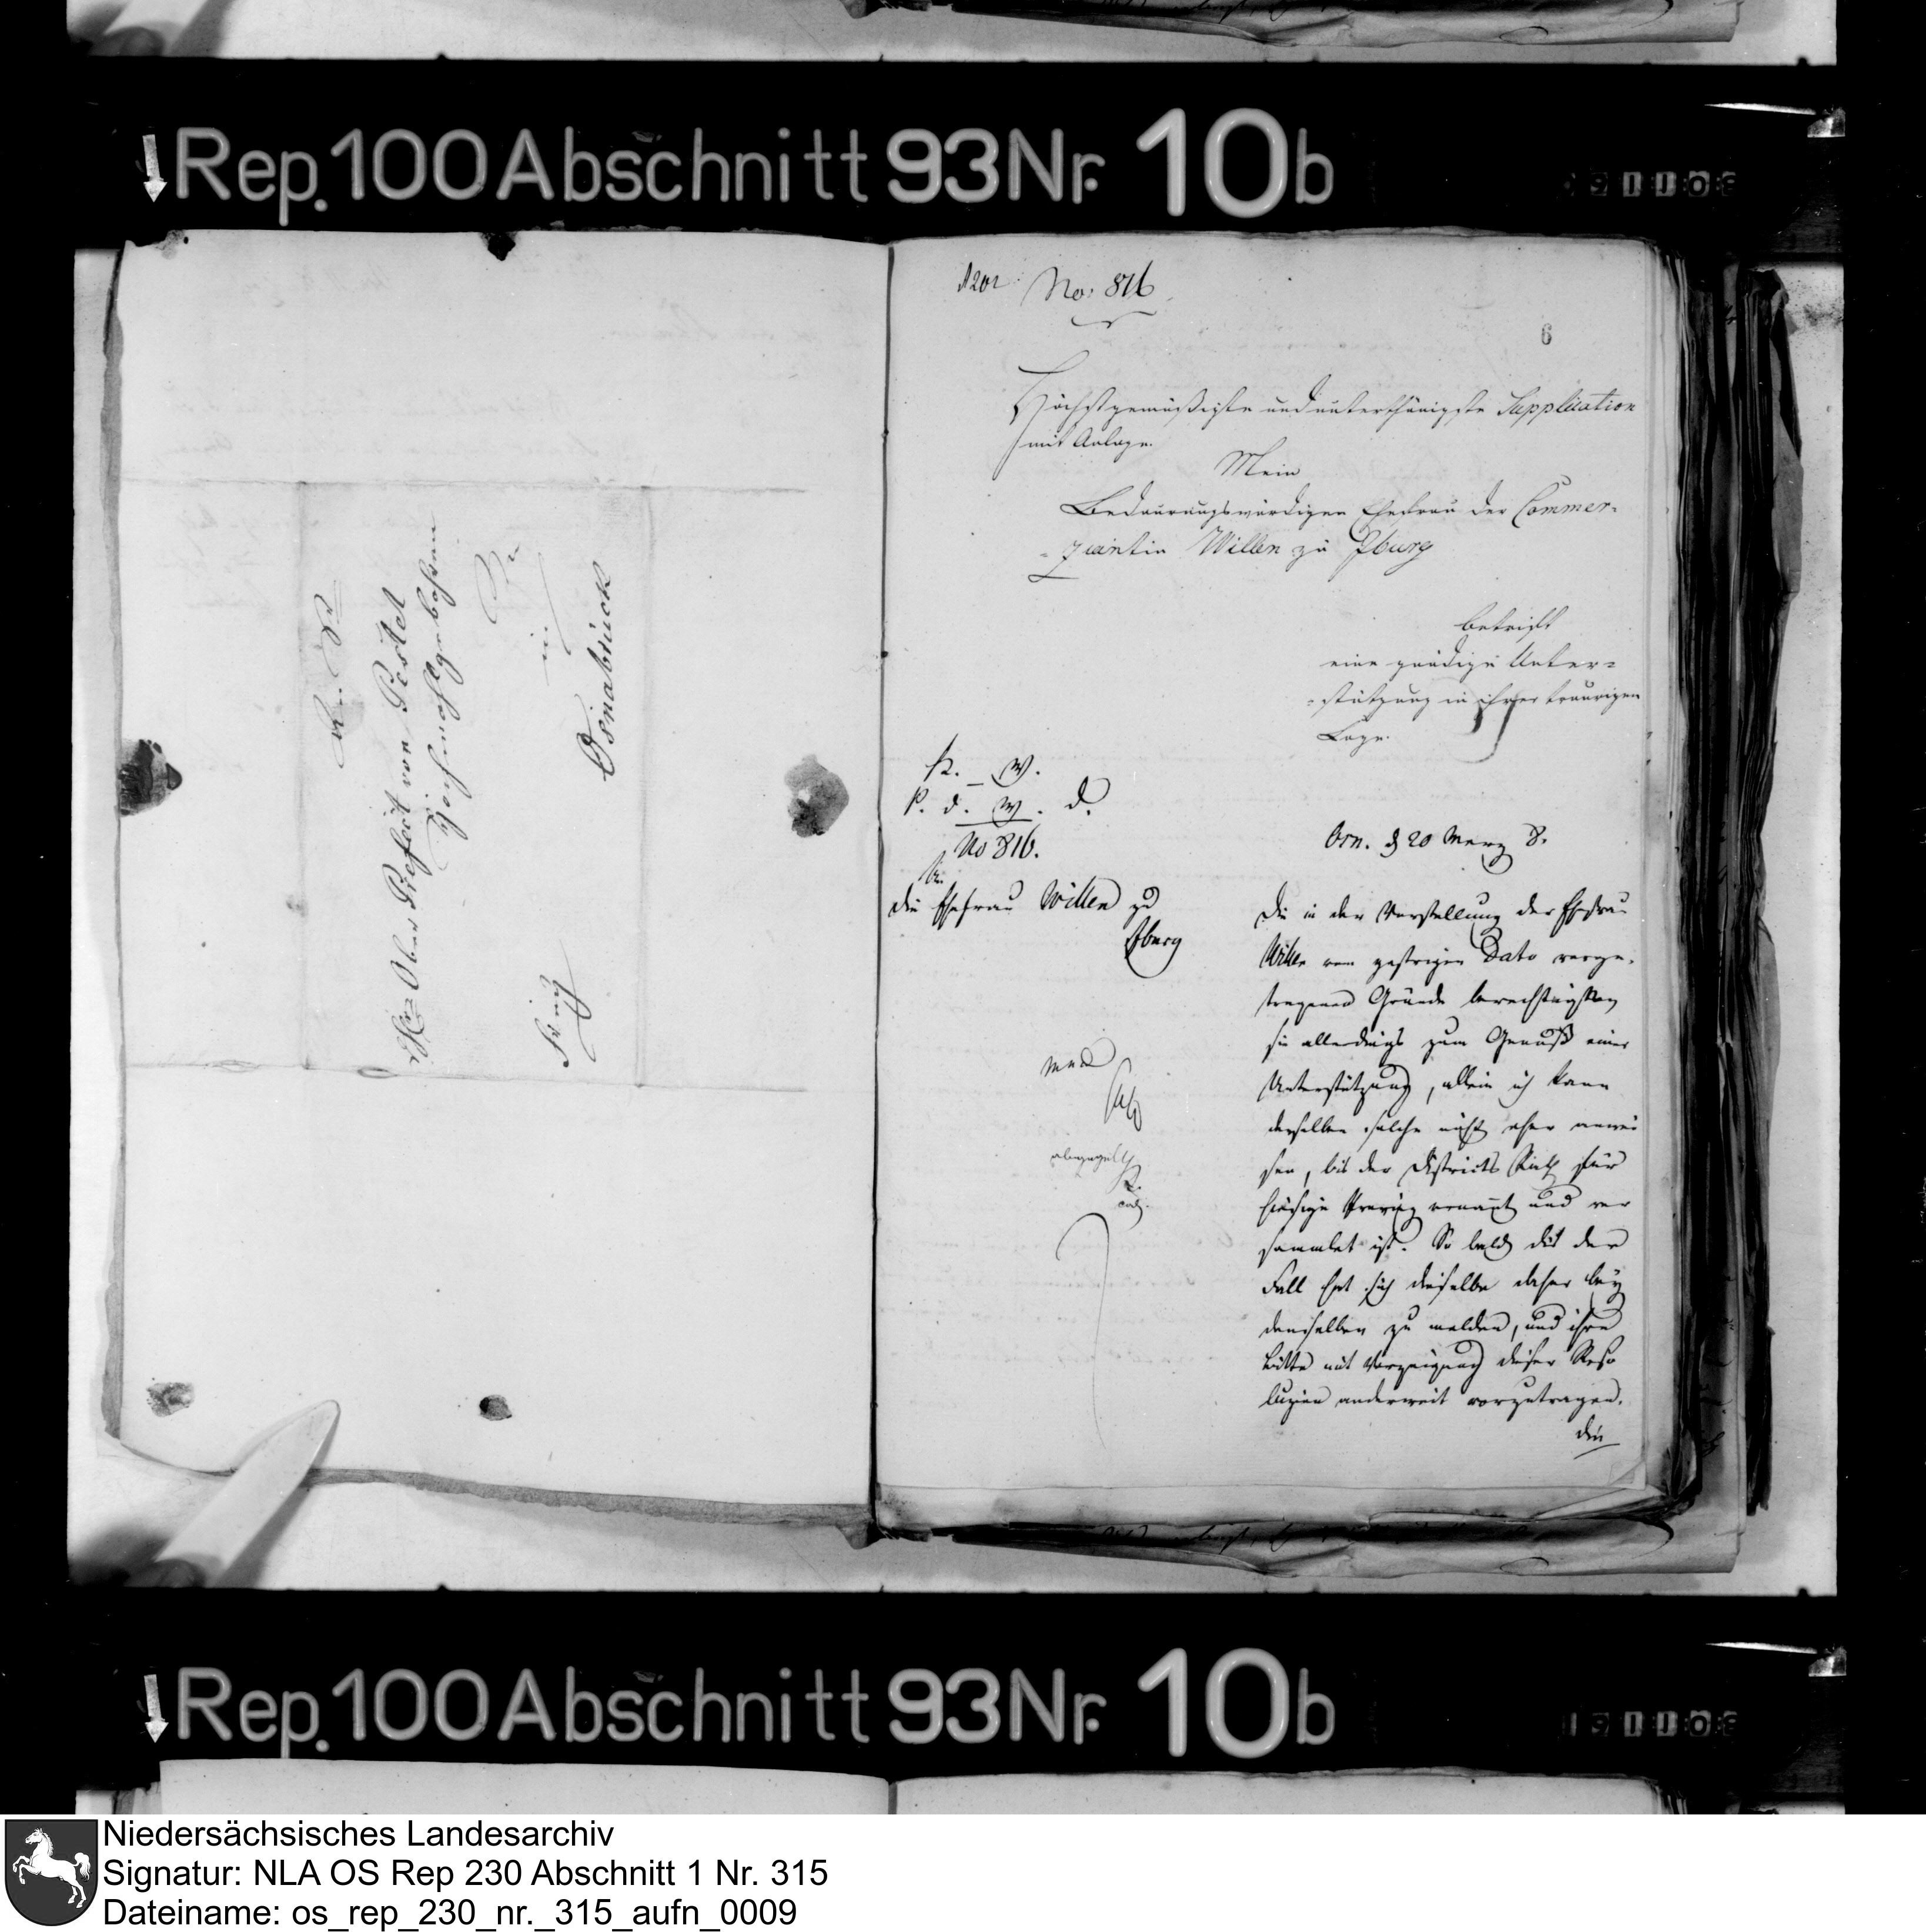 Rep. 100 Abschnitt 93 Nr. 10b
An
Hn Ober Präfect von Pestel
Hochwohlgebohren
in
Osnabrück
Frey
No: 816
6
Höchstgemüßigte und unterthänigste Supplication
mit Anlage.
Mein
Bedaurungswürdigen Ehefrau der Commer-
Willen zu Iburg
betrift
eine gnädige Unter=
=stützung in ihrer traurigen
Lage.
P. W.
P. d. W. d.
No 816.
An
die Ehefrau Willen zu
Iburg
Osn. d 20 Merz 8.
Die in der Vorstellung der Ehefrau
Willen vom gestrigen Dato vorge-
tragenen Gründe berechtigten
sie allerdings zum Genuß einer
Unterstützung, allein ich kann
derselben solche nicht eher anwei
sen, bis der Districts Rath für
hiesige Provinz ernant und ver
sammlet ist. So bald dies der
Fall hat sich dieselbe daher bey
demselben zu melden, und ihre
Bitte mit Vorzeigung dieser Reso
luzion anderweit vorzutragen.
die
Rep. 100 Abschnitt 93 Nr. 10b
Niedersächsisches Landesarchiv
Signatur: NLA OS Rep 230 Abschnitt 1 Nr. 315
Dateiname: os_rep_230_nr._315_aufn_0009